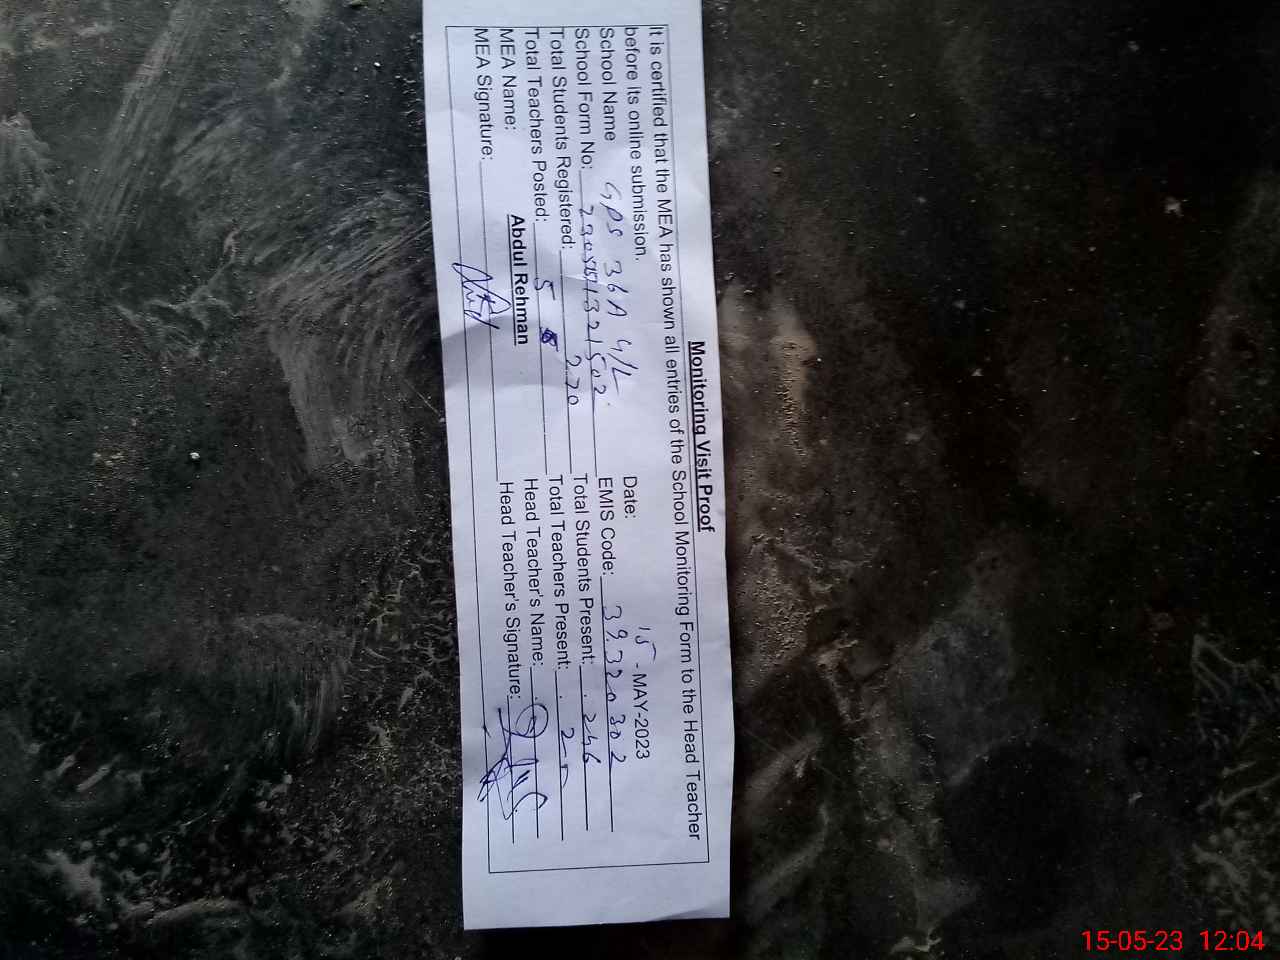 Monitoring Visit Proof
It is certified that the MEA has shown all entries of the School Monitoring Form to the Head Teacher
before its online submission. Date: 15-MAY-2023
School Name GPS 36A 4/L EMIS Code: 39320302
School Form No: Total Students Present: 246
Total Students Registered: 270 Total Teachers Present:
Total Teachers Posted: 5 Head Teacher's Name:
MEA Name: Abdul Rehman Head Teacher's Signature:
MEA Signature:
15-05-23 12:04